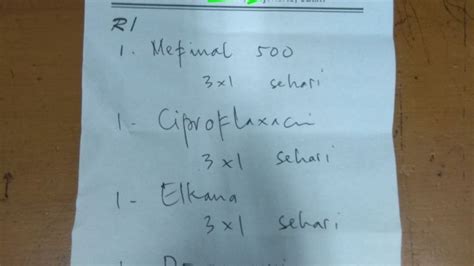 R/
1. Mefinal 500
3x1 sehari
1- Ciproflaxacin
3x1 sehari
1- Elkana
3x1 sehari
1